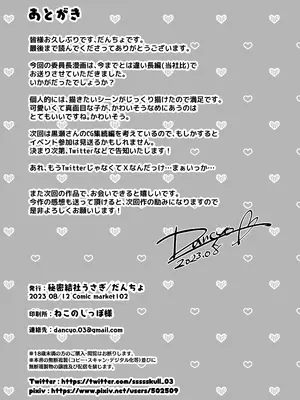 あとがき
皆様お久しぶりです、だんちょです。
最後まで読んでくださってありがとうございます。
今回の委員長漫画は、今までとは違い長編(当社比)で
お送りさせていただきました。
いかがだったでしょうか?
個人的には、描きたいシーンがじっくり描けたので満足です。
可愛いくて真面目な子が、かわいそうなめにあうのは
とてもいいですね。かわいそう。
次回は黒瀬さんのCG集続編を考えているので、もしかすると
イベント参加は見送るかもしれません。
決まり次第、Twitterなどで告知いたします!
あれ、もうTwitterじゃなくてXなんだっけ…まぁいっか…
また次回の作品で、お会いできると嬉しいです。
今作の感想も送って頂けると、次回作の励みになりますので
是非よろしくお願いします!
Dancyo
2023.08
発行:秘密結社うさぎ/だんちょ
2023 08/12 Comic market102
印刷所:ねこのしっぽ様
連絡先:dancyo.03@gmail.com
※18歳未満の方のご購入・閲覧はお断りします。
※本書の無断複製(コピー・スキャン・デジタル化等)並びに
無断複製物の譲渡及び配信を禁じます。
Twitter:https://twitter.com/sssssskull_03
pixiv:https://www.pixiv.net/users/502509